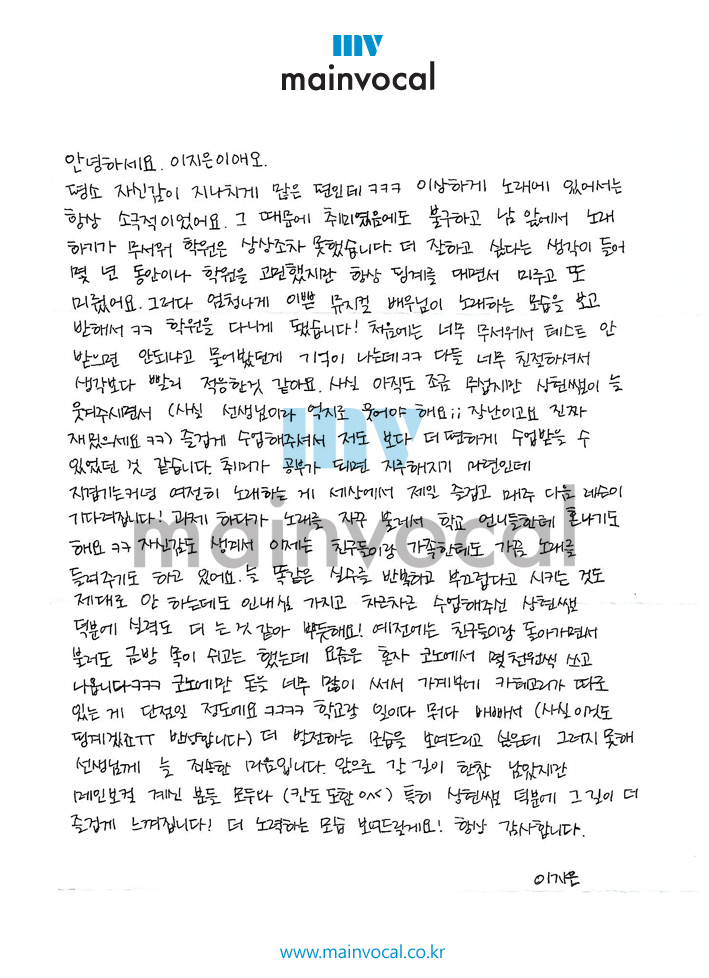 mv
mainvocal
안녕하세요. 이지은이에요.
평소 자신감이 지나치게 많은 편인데ㅋㅋㅋ 이상하게 노래에 있어서는
항상 소극적이었어요. 그 때문에 취미였음에도 불구하고 남 앞에서 노래
하기가 무서워 학원은 상상조차 못했습니다. 더 잘하고 싶다는 생각이 들어
몇 년 동안이나 학원을 고민했지만 항상 핑계를 대면서 미루고 또
미뤘어요. 그러다 엄청나게 이쁜 뮤지컬 배우님이 노래하는 모습을 보고
반해서 ㅋㅋ 학원을 다니게 됐습니다! 처음에는 너무 무서워서 테스트 안
받으면 안되냐고 물어봤던게 기억이 나는데ㅋㅋ 다들 너무 친절하셔서
생각보다 빨리 적응한것 같아요. 사실 아직도 조금 무섭지만 상현쌤이 늘
웃겨주시면서 (사실 선생님이라 억지로 웃어야 해요;; 장난이고요 진짜
재밌으세요 ㅋㅋ) 즐겁게 수업해주셔서 저도 보다 더 편하게 수업받을 수
있었던 것 같습니다. 취미가 공부가 되면 지루해지기 마련인데
지겹기는커녕 여전히 노래하는 게 세상에서 제일 즐겁고 매주 다음 레슨이
기다려집니다! 과제 하다가 노래를 자꾸 불러서 학교 언니들한테 혼나기도
해요 ㅋㅋ 자신감도 생겨서 이제는 친구들이랑 가족한테도 가끔 노래를
들려주기도 하고 있어요. 늘 똑같은 실수를 반복하고 부끄럽다고 시키는 것도
제대로 안 하는데도 인내심 가지고 차근차근 수업해주신 상현쌤
덕분에 실력도 더 는 것 같아 뿌듯해요! 예전에는 친구들이랑 돌아가면서
불러도 금방 목이 쉬고는 했는데 요즘은 혼자 코노에서 몇천원씩 쓰고
나옵니다ㅋㅋㅋ 코노에만 돈을 너무 많이 써서 가계부에 카테고리가 따로
있는 게 단점일 정도에요 ㅋㅋㅋㅋ 학교랑 일이다 뭐다 바빠서 (사실 이것도
핑계겠죠ㅠㅠ 반성합니다) 더 발전하는 모습을 보여드리고 싶은데 그러지 못해
선생님께 늘 죄송한 마음입니다. 앞으로 갈 길이 한참 남았지만
메인보컬 계신 분들 모두와 (칸도 포함 ㅇㅅㅇ) 특히 상현쌤 덕분에 그 길이 더
즐겁게 느껴집니다! 더 노력하는 모습 보여드릴게요! 항상 감사합니다.
이지은
www.mainvocal.co.kr